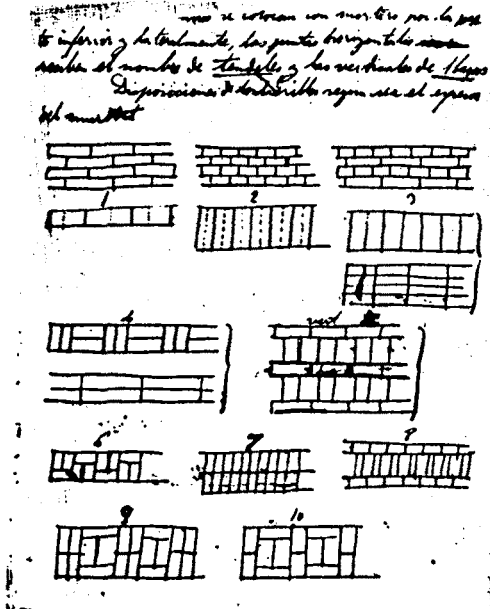 se colocan con mortero por la par
te inferior y lateralmente, las juntas horizontales
reciben el nombre de tendeles y las verticales de llagas
Disposiciones de los ladrillos segun sea el espesor
del
1 2 3
4 vert
6 7 8
9 10